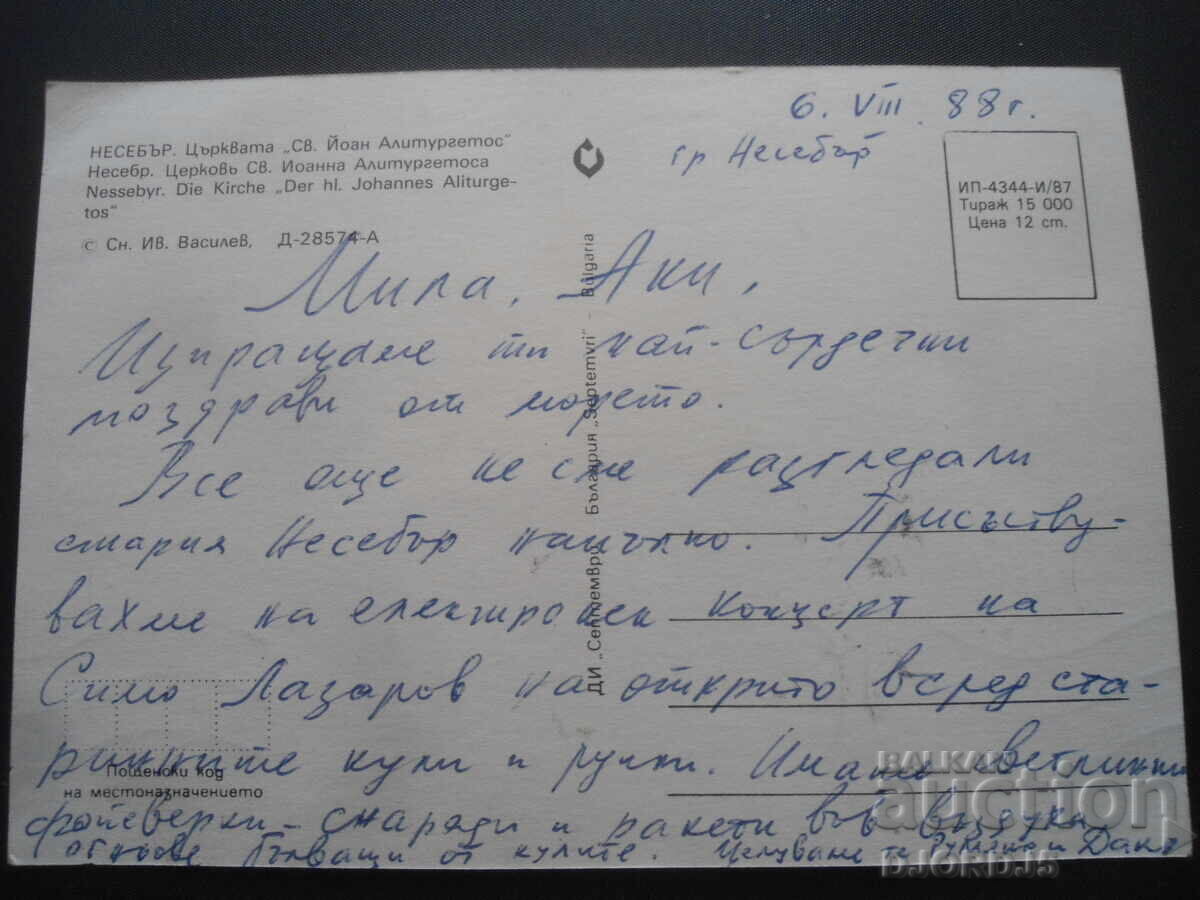 НЕСЕБЪР. Църквата „Св. Йоан Алитургетос"
Несебр. Церковь Св. Иоанна Алитургетоса
Nessebyr. Die Kirche „Der hl. Johannes Aliturge-
tos"
© Сн. Ив. Василев, Д-28574-А
6. VIII 88 г.
гр Несебър
ИП-4344-И/87
Тираж 15 000
Цена 12 ст.
ДИ „Септември" България „Septemvri" - Bulgaria
Мила, Аки,
Изпращаме ти най-сърдечни
поздрави от морето.
Все още не сме разгледали
стария Несебър напълно. Присъству-
вахме на електронен концерт на
Симо Лазаров на открито всред ста-
ринните кули и руини. Имаше светлинни
фойерверки - снаряди и ракети във въздуха
огньове бълващи от кулите. Целуваме те Румяна и Дако
Пощенски код
на местоназначението
BALKAN
auction
DJORDJ5